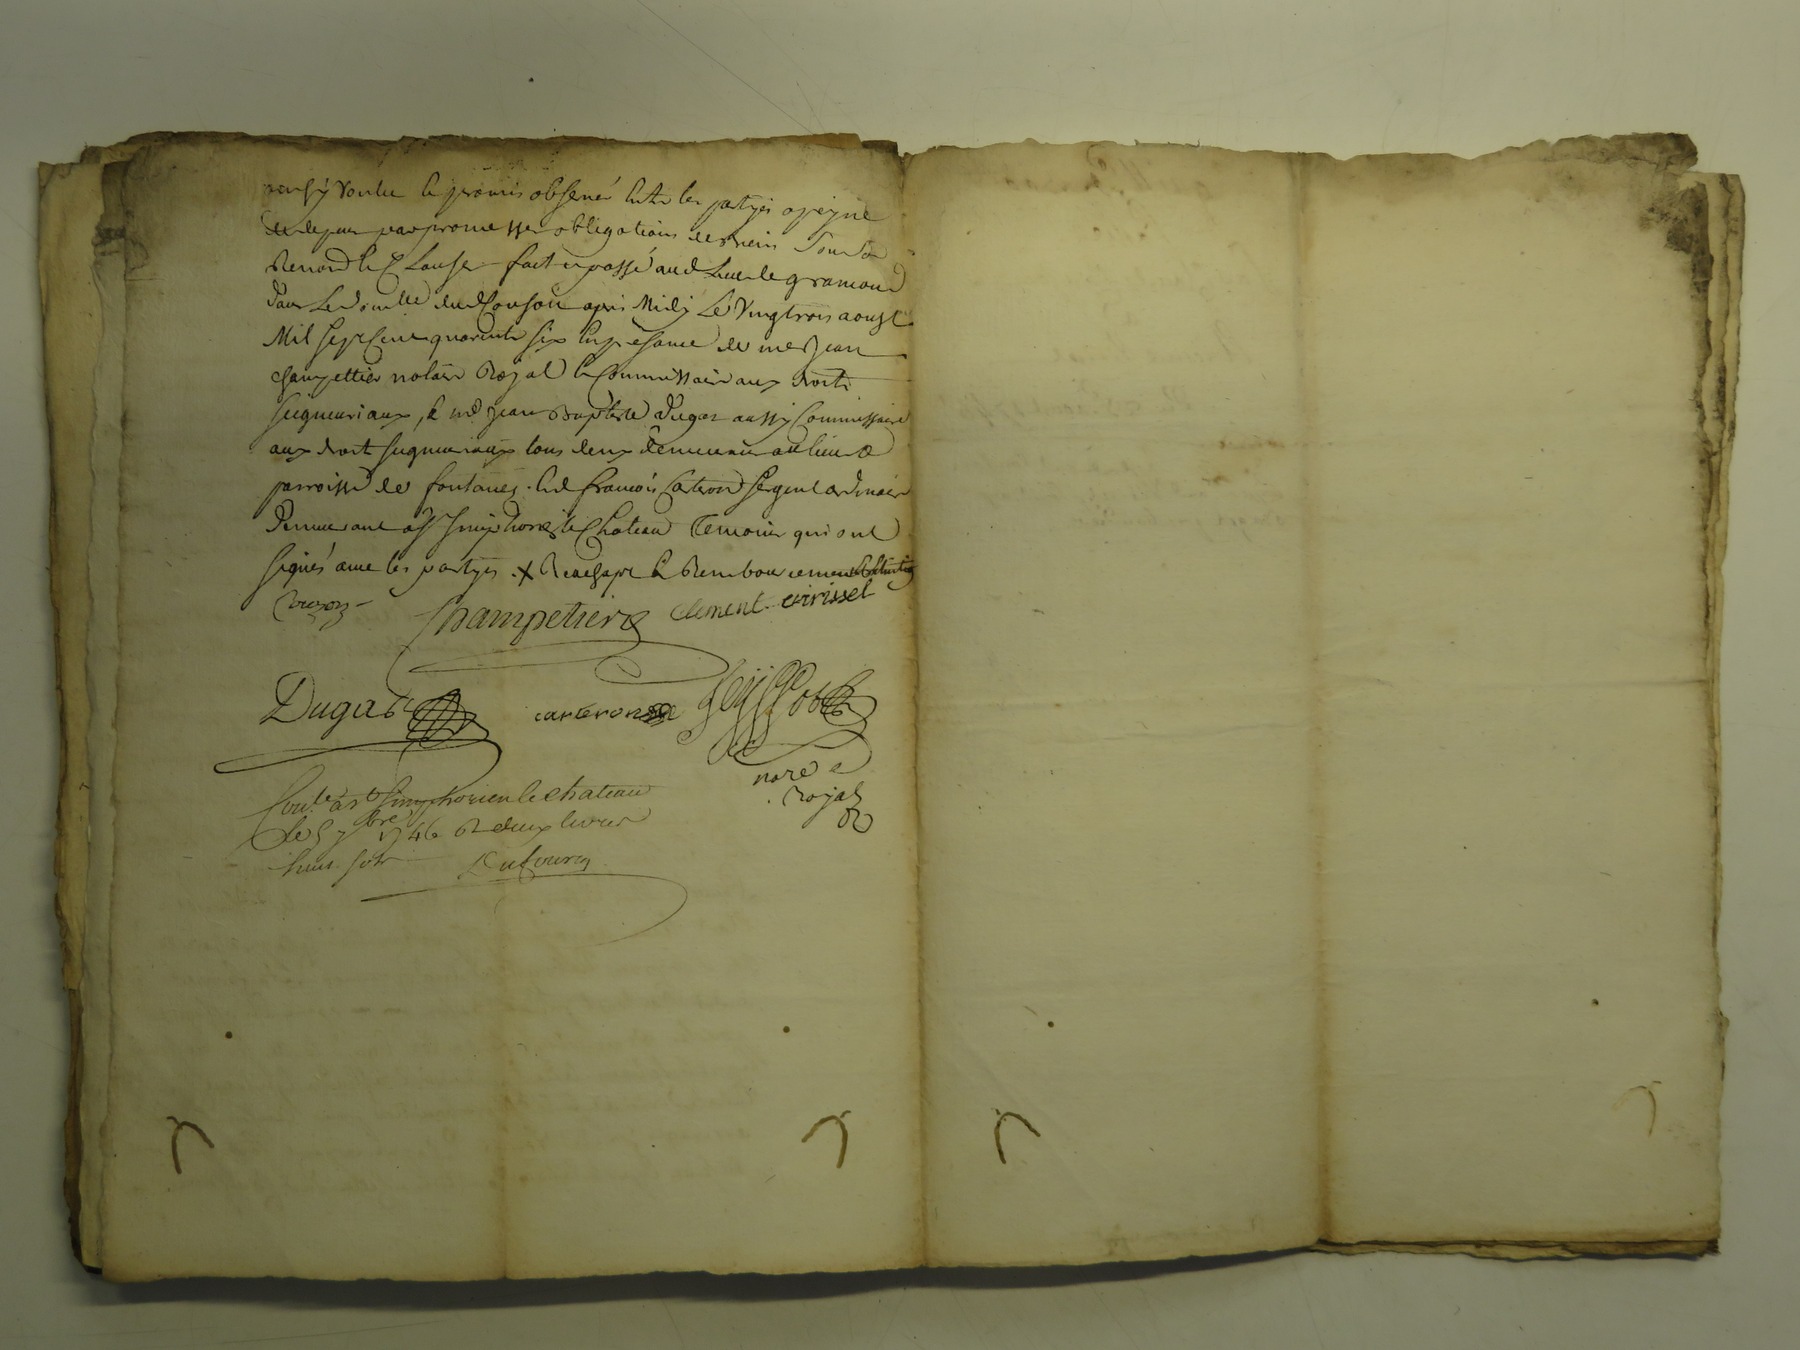 ainsy voulu et promis observé entre les partyes a peyne
de depens par promesses obligations de biens Soum on
Renond et Clauses fait et passé aud lieu de gramond
dans le domille dud Couson apres Midy Le Vingtrois aoust
Mil Sept Cent quarente six En présance de me Jean
champettier notaire Royal et Commissaire aux droits
seigneuriaux, & me jean Baptiste dugas aussy Commissaire
aux droit seigneuriaux tous deux demeurant au lieu &
parroisse de fontanes. Et françois Carteron sergent ordinaire
demeurant a St Simphorien le Chateau Temoins qui ont
signés avec les partyes . X Reachapt & Remboursement
Couzon Champetier clement eirissel
Dugas carteron
nore
Royal
Conlé a St Simphorien le chateau
le 5 7bre 1746 R deux livres
huit sols Dufour